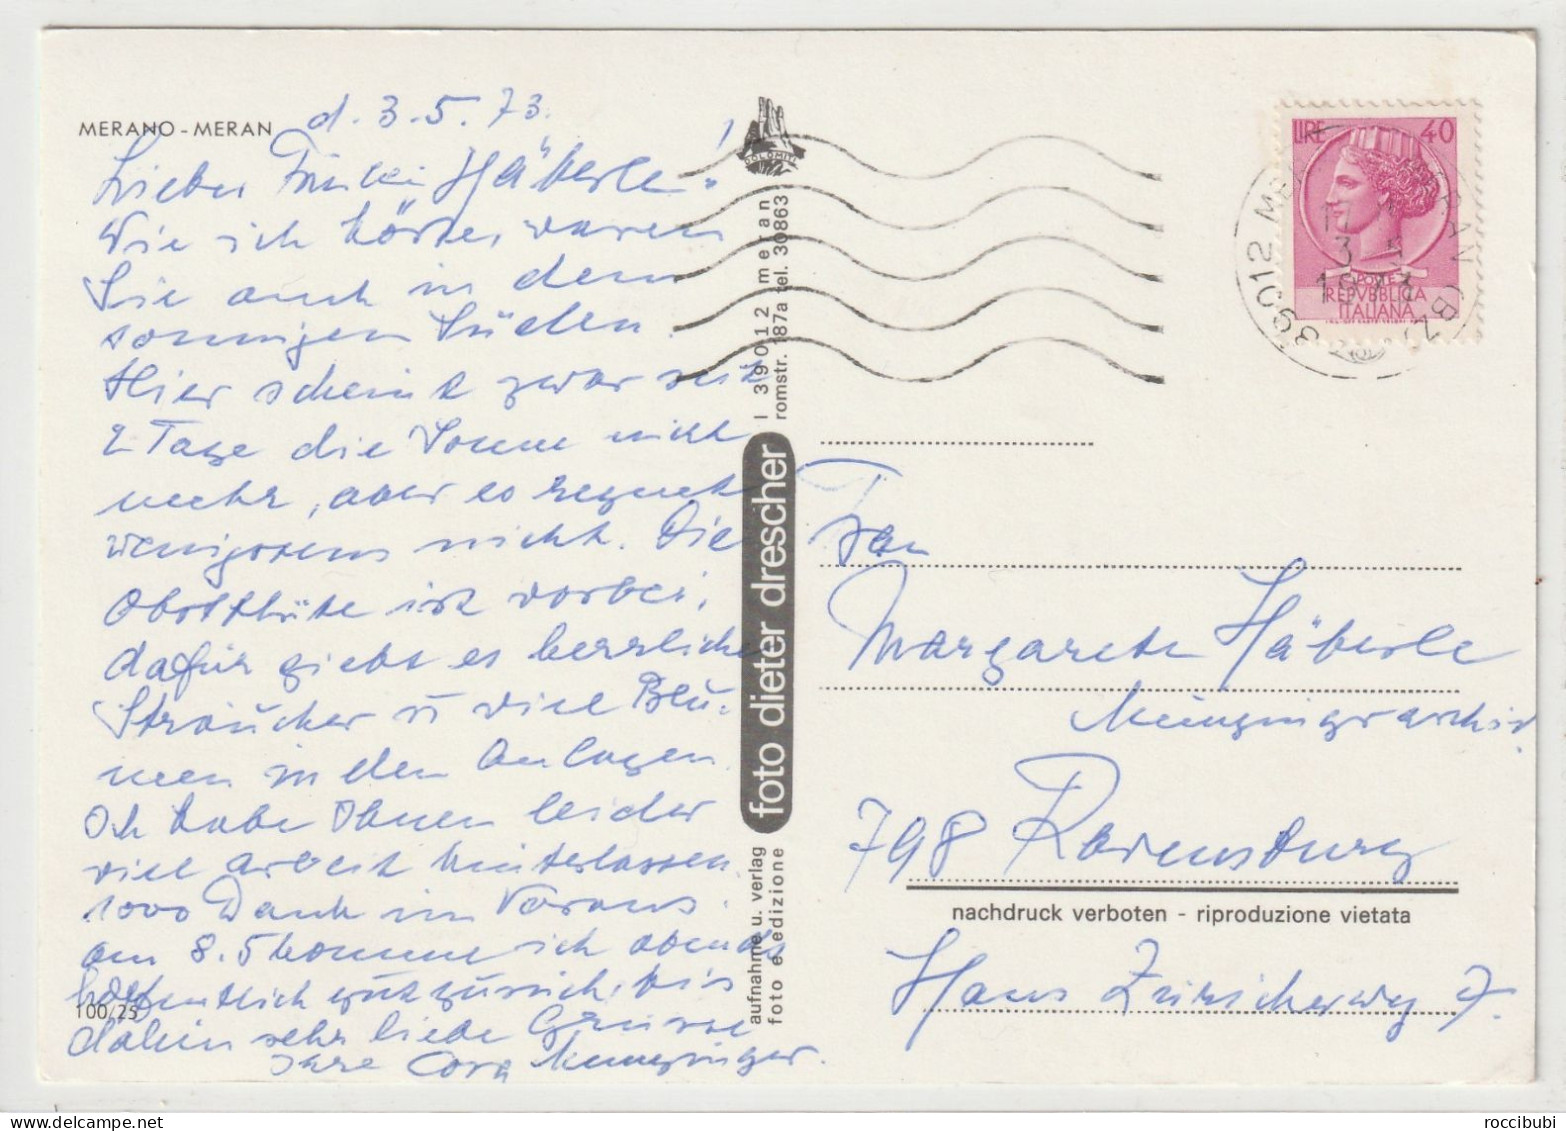 MERANO - MERAN
d. 3.5.73.
Liebe Häberle!
Wie ich hörte, waren
Sie auch in dem
sonnigen Süden.
Hier scheint zwar seit
2 Tage die Sonne nicht
mehr, aber es regnet
wenigstens nicht. Die
Obstblüte ist vorbei,
dafür giebt es herrliche
Sträucher u viel Blu-
men in den Anlagen.
Ich habe Ihnen leider
viel Arbeit hinterlassen.
1000 Dank im Voraus.
Am 8.5 komme ich abends
hoffentlich gut zurück, bis
dahin sehr liebe Grüsse
Ihre Cora Munzinger.
100/25
DOLOMITI
I 39012 meran
romstr. 187a tel. 30863
foto dieter drescher
aufnahme u. verlag
foto e edizione
LIRE 40
POSTE
REPVBBLICA
ITALIANA
39012
17
3 5
1973
Frau
Margarete Häberle
Munzingerarchiv.
798 Ravensburg
nachdruck verboten - riproduzione vietata
Hans Züricherweg 7.
roccibubi